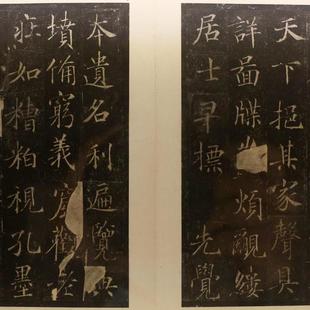 天下挹其家聲具
詳啚牒煩覼縷
居士早摽先覺
本遺名利遍覽典
墳俻窮義窟觀老
莊如糟粕視孔墨